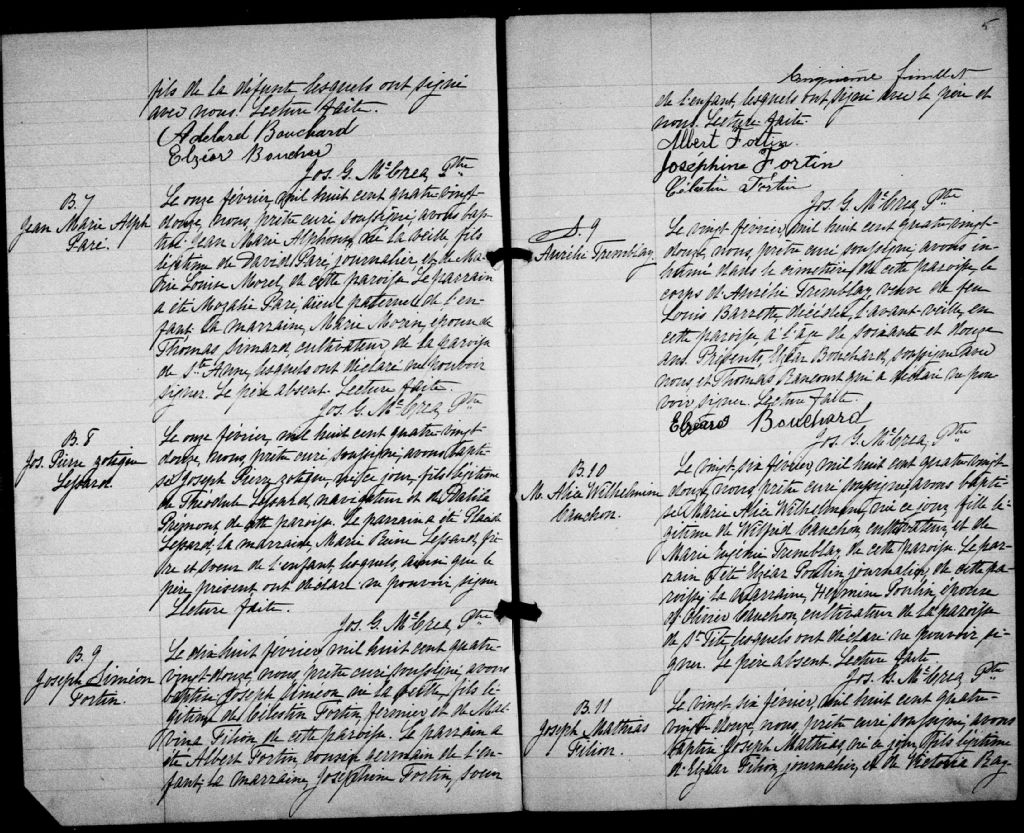 fils de la défunte lesquels ont signé
avec nous. Lecture faite.
Adelard Bouchard
Elzéar Bouchar
Jos. G. McCrea Ptre
B. 7
Jean Marie Alph
Paré.
Le onze février, mil huit cent quatre vingt
douze, nous, prêtre curé soussigné, avons bap
tisé Jean Marie Alphonse, né la veille, fils
légitime de David Paré, journalier et de Ma-
rie Louise Morel, de cette paroisse. Le parrain
a été Paré, aïeul paternel de l'en-
fant, la marraine, Marie Morin, épouse de
Thomas Simard, cultivateur de la paroisse
de Ste Anne, lesquels ont déclaré ne pouvoir
signer. Le père absent. Lecture faite.
Jos. G. McCrea, Ptre
B. 8
Jos. Pierre zotique
Lessard
Le onze février, mil huit cent quatre vingt
douze, nous, prêtre curé, soussigné, avons bapti-
sé Joseph Pierre zotique, né ce jour, fils légitime
de Théodule Lessard, navigateur et de
de cette paroisse. Le parrain a été Placide
Lessard, la marraine, Marie Reine Lessard, frè-
re et soeur de l'enfant, lesquels ainsi que le
père présent ont déclaré ne pouvoir signer
Lecture faite.
Jos. G. McCrea, Ptre
B. 9
Joseph Siméon
Fortin.
Le dix huit février mil huit cent quatre
vingt-douze, nous prêtre curé, soussigné, avons
baptisé Joseph Siméon né la veille, fils lé-
gitime de Célestin Fortin, fermier et de Mal-
vina Filion de cette paroisse. Le parrain a
été Albert Fortin cousin germain de l'en-
fant, la marraine, Joséphine Fortin, soeur
5
Cinquième feuillet
de l'enfant, lesquels ont signé avec le père et
nous. Lecture faite.
Albert Fortin.
Josephine Fortin
Célestin Fortin
Jos. G. McCrea Ptre
S. 9
Aurélie Tremblay
Le vingt février, mil huit cent quatre-vingt-
douze, nous, prêtre curé soussigné avons in-
humé dans le cimetière de cette paroisse, le
corps d'Aurélie Tremblay veuve de feu
Louis Barrette décédée l'avant-veille, en
cette paroisse à l'âge de soixante et douze
ans. Présents Elzéar Bouchard, soussigné avec
nous, et Thomas Rancourt qui a déclaré ne pou
voir signer. Lecture faite.
Elzéard Bouchard
Jos. G. McCrea, Ptre
B. 10
M. Alice Wilhelmine
Cauchon.
Le vingt six février, mil huit cent quatre-vingt-
douze, nous, prêtre curé soussigné, avons bapti-
sé Marie Alice Wilhelmine, née ce jour, fille lé-
gitime de Wilfrid Cauchon cultivateur, et de
Marie Tremblay, de cette paroisse. Le par-
rain a été Elzéar Poulin, journalier, de cette pa-
roisse, la marraine, Hermine Poulin, épouse
d'Olivier Cauchon, cultivateur de la paroisse
de St Tite, lesquels ont déclaré ne pouvoir si-
gner. Le père absent. Lecture faite.
Jos. G. McCrea, Ptre
B. 11
Joseph Mathias
Filion.
Le vingt six février, mil huit cent quatre-
vingt-douze, nous, prêtre curé soussigné, avons
baptisé Joseph Mathias, né ce jour, fils légitime
d'Elzéar Filion, journalier, et de Victoria